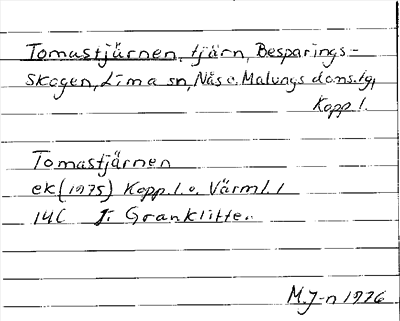 Tomastjärnen, tjärn, Besparings-
skogen, Lima sn, Nås o. Malungs doms.lg,
Kopp. l.
Tomastjärnen
ek (1975) Kopp. l. o. Värml. l
14C Granklitte..
M.J-n 1976